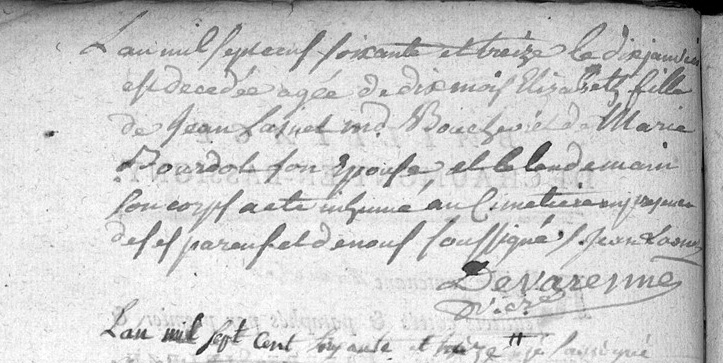 L'an mil sept cens soixante et treize le dix janvier
est decedée agée de dix mois Elizabeth fille
de Jean Lasnet md. Boucher et de Marie
Bourdot son Epouse, et le lendemain
son corps a eté inhumé au Cimetiere en presence
de ses parens et de nous soussigné s Jean Lasnet
De Varenne
vicre
L'an mil sept cent soixante et treize